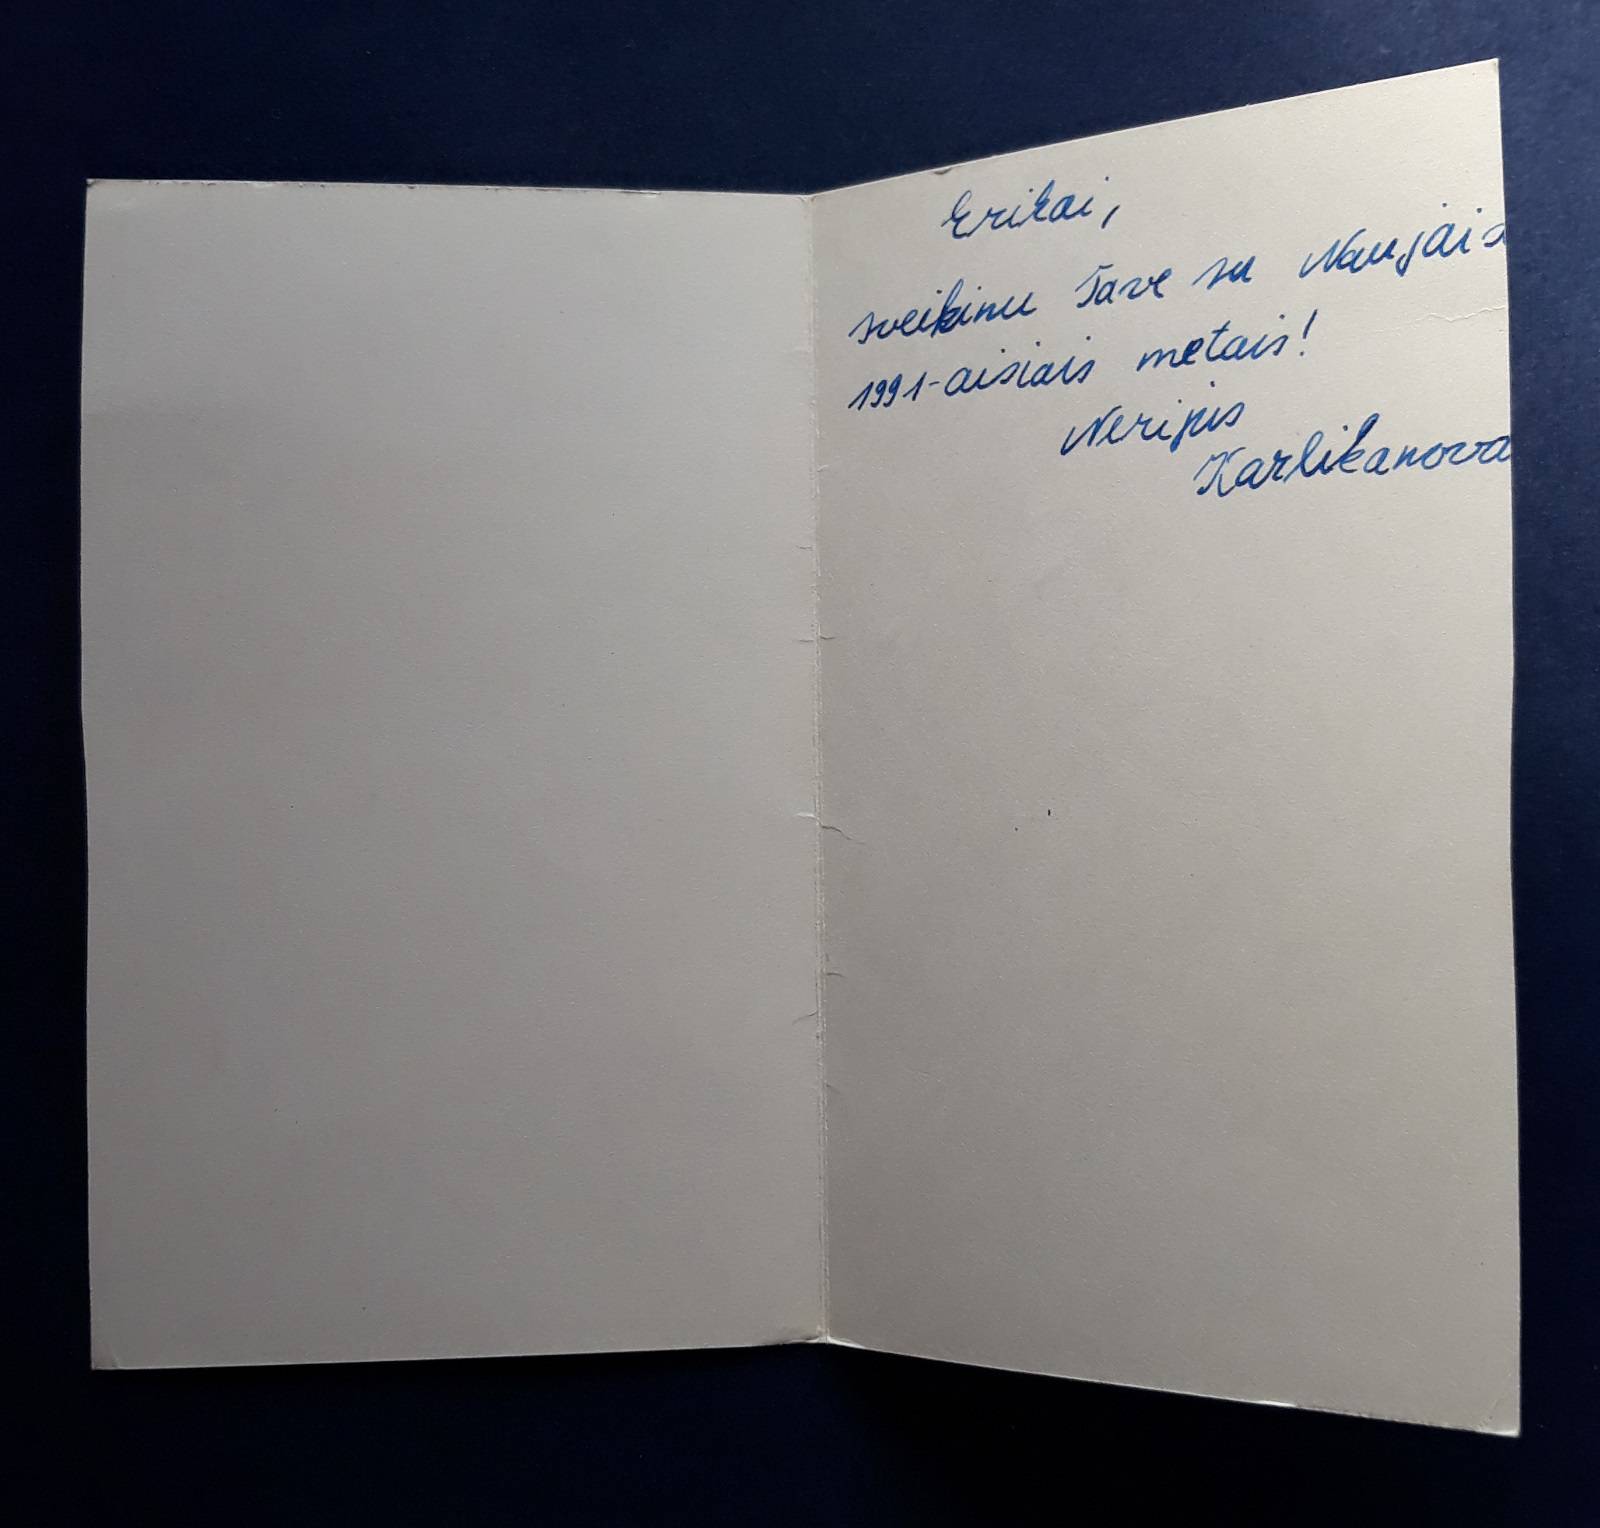 Erikai,
sveikinu Tave su Naujais
1991-aisiais metais!
Nerijus
Karlikanova